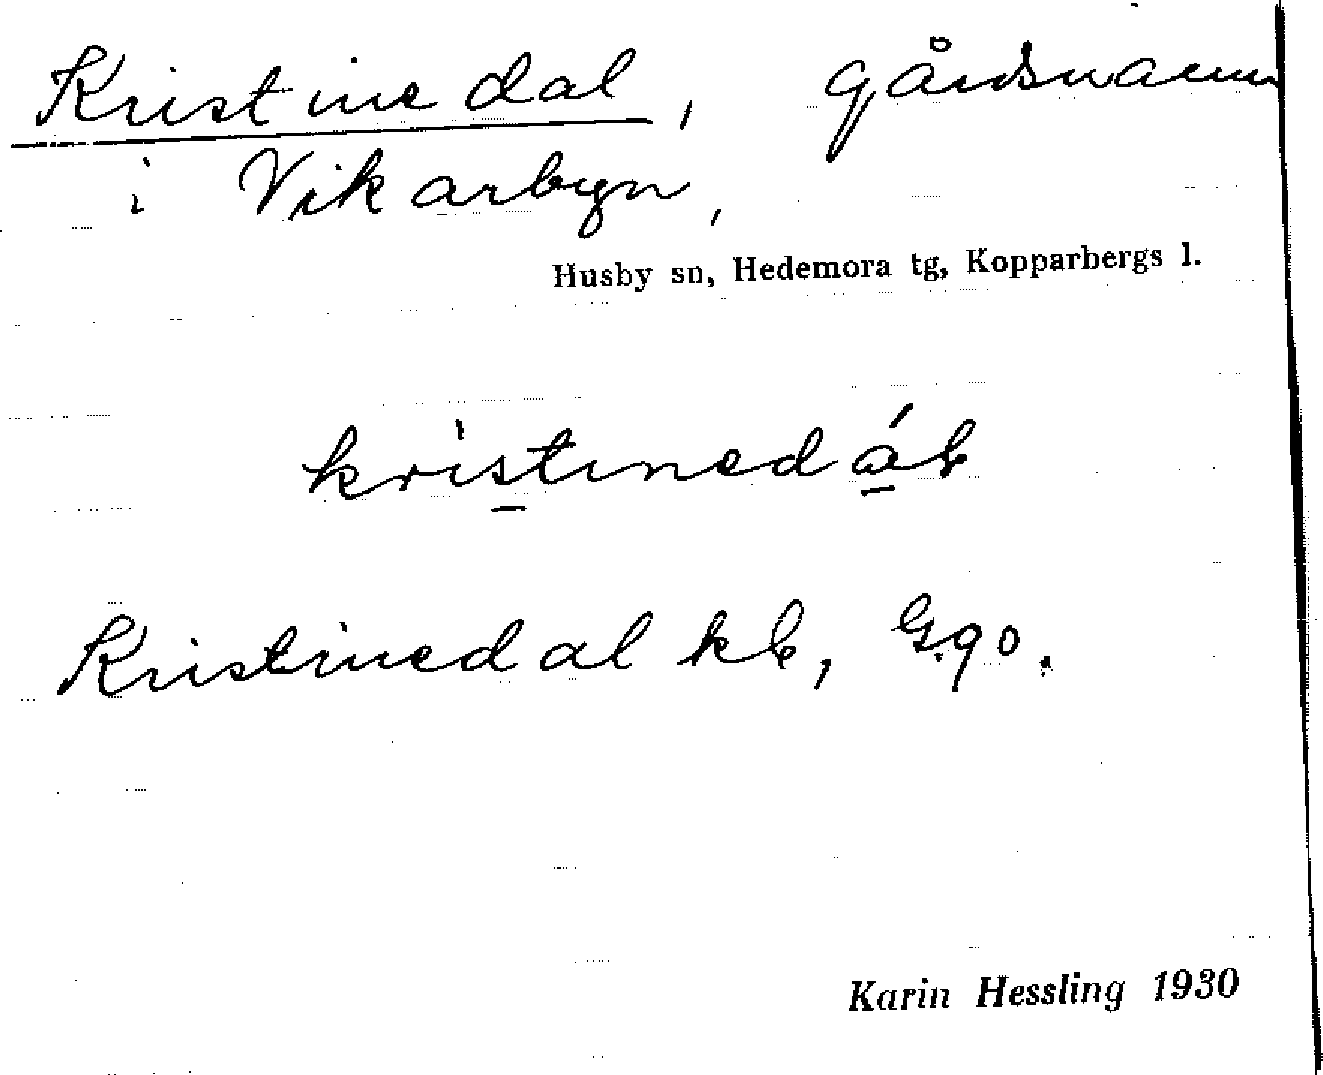 Kristinedal, gårdsnamn
i Vikarbyn,
Husby sn, Hedemora tg, Kopparbergs l.
kristinedál
Kristinedal kb, G.90.
Karin Hessling 1930